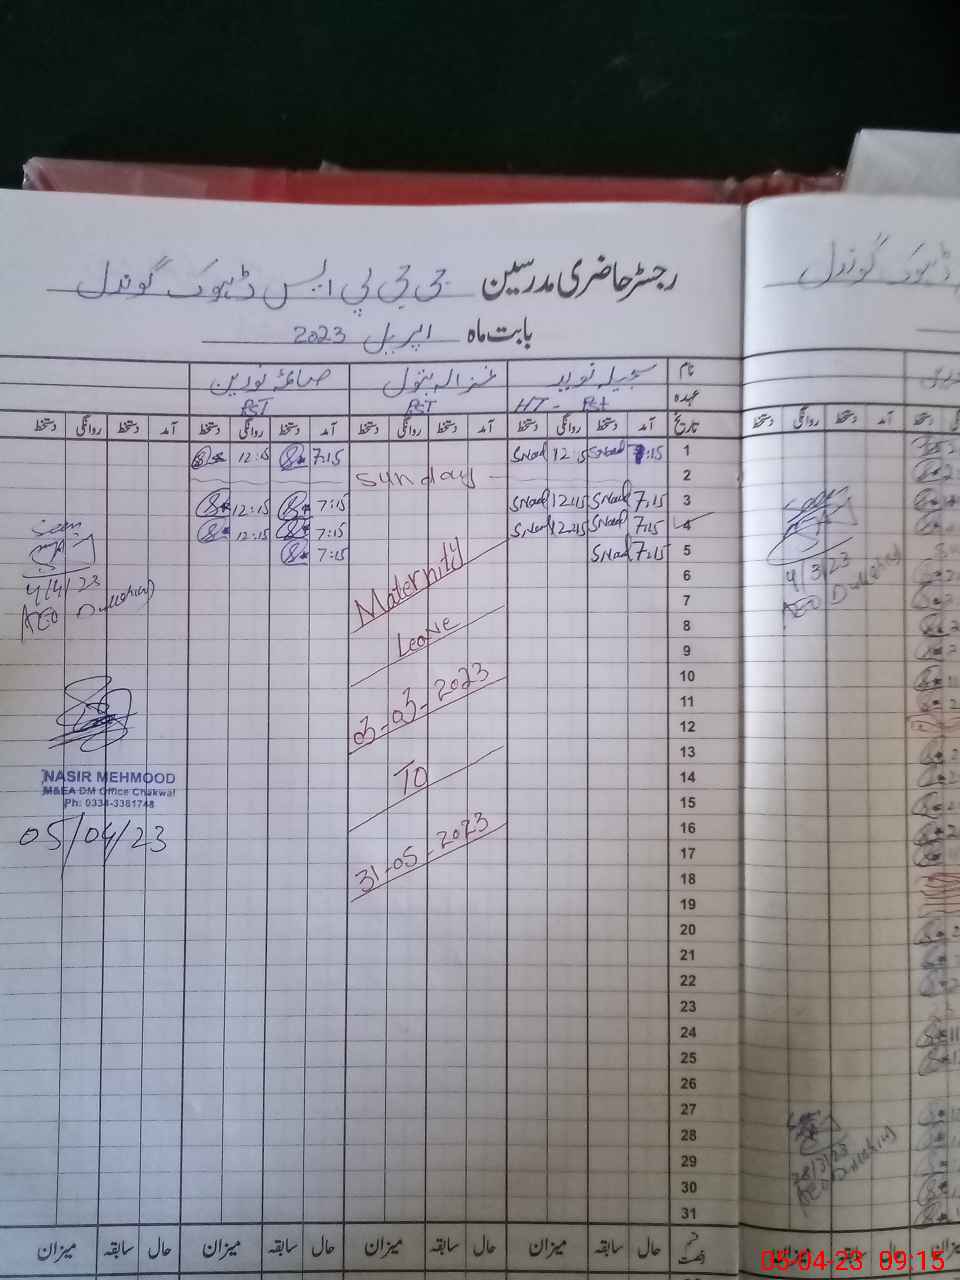 رجسٹر حاضری مدرسین جی جی پی ایس ڈہوک گوندل
بابت ماہ اپریل 2023
نام سجیلہ نوید غزالہ بتول صائمہ نورین
عہدہ HT - Pst PST PST
تاریخ آمد دستخط روانگی دستخط آمد دستخط روانگی دستخط آمد دستخط روانگی دستخط آمد دستخط روانگی دستخط
1 7:15 SNad 12:15 SNad 7:15 12:15
2 Sunday
3 7.15 SNad 12:15 SNad 7:15 12:15
4 7.15 SNad 12:15 SNad 7:15 12:15
5 7:15 SNad 7:15
6
7
8
9
10
11
12
13
14
15
16
17
18
19
20
21
22
23
24
25
26
27
28
29
30
31
Maternity
Leave
03-03-2023
TO
31-05-2023
Seen
4/4/23
AEO
NASIR MEHMOOD
M&EA DM Office Chakwal
Ph: 0334-3381748
05/04/23
حال سابقہ میزان حال سابقہ میزان حال سابقہ میزان حال سابقہ میزان
ڈہوک گوندل
دستخط روانگی دستخط آمد دستخط
4/3/23
AEO
28/3/23
AEO
میزان سابقہ حال
05-04-23 09:15